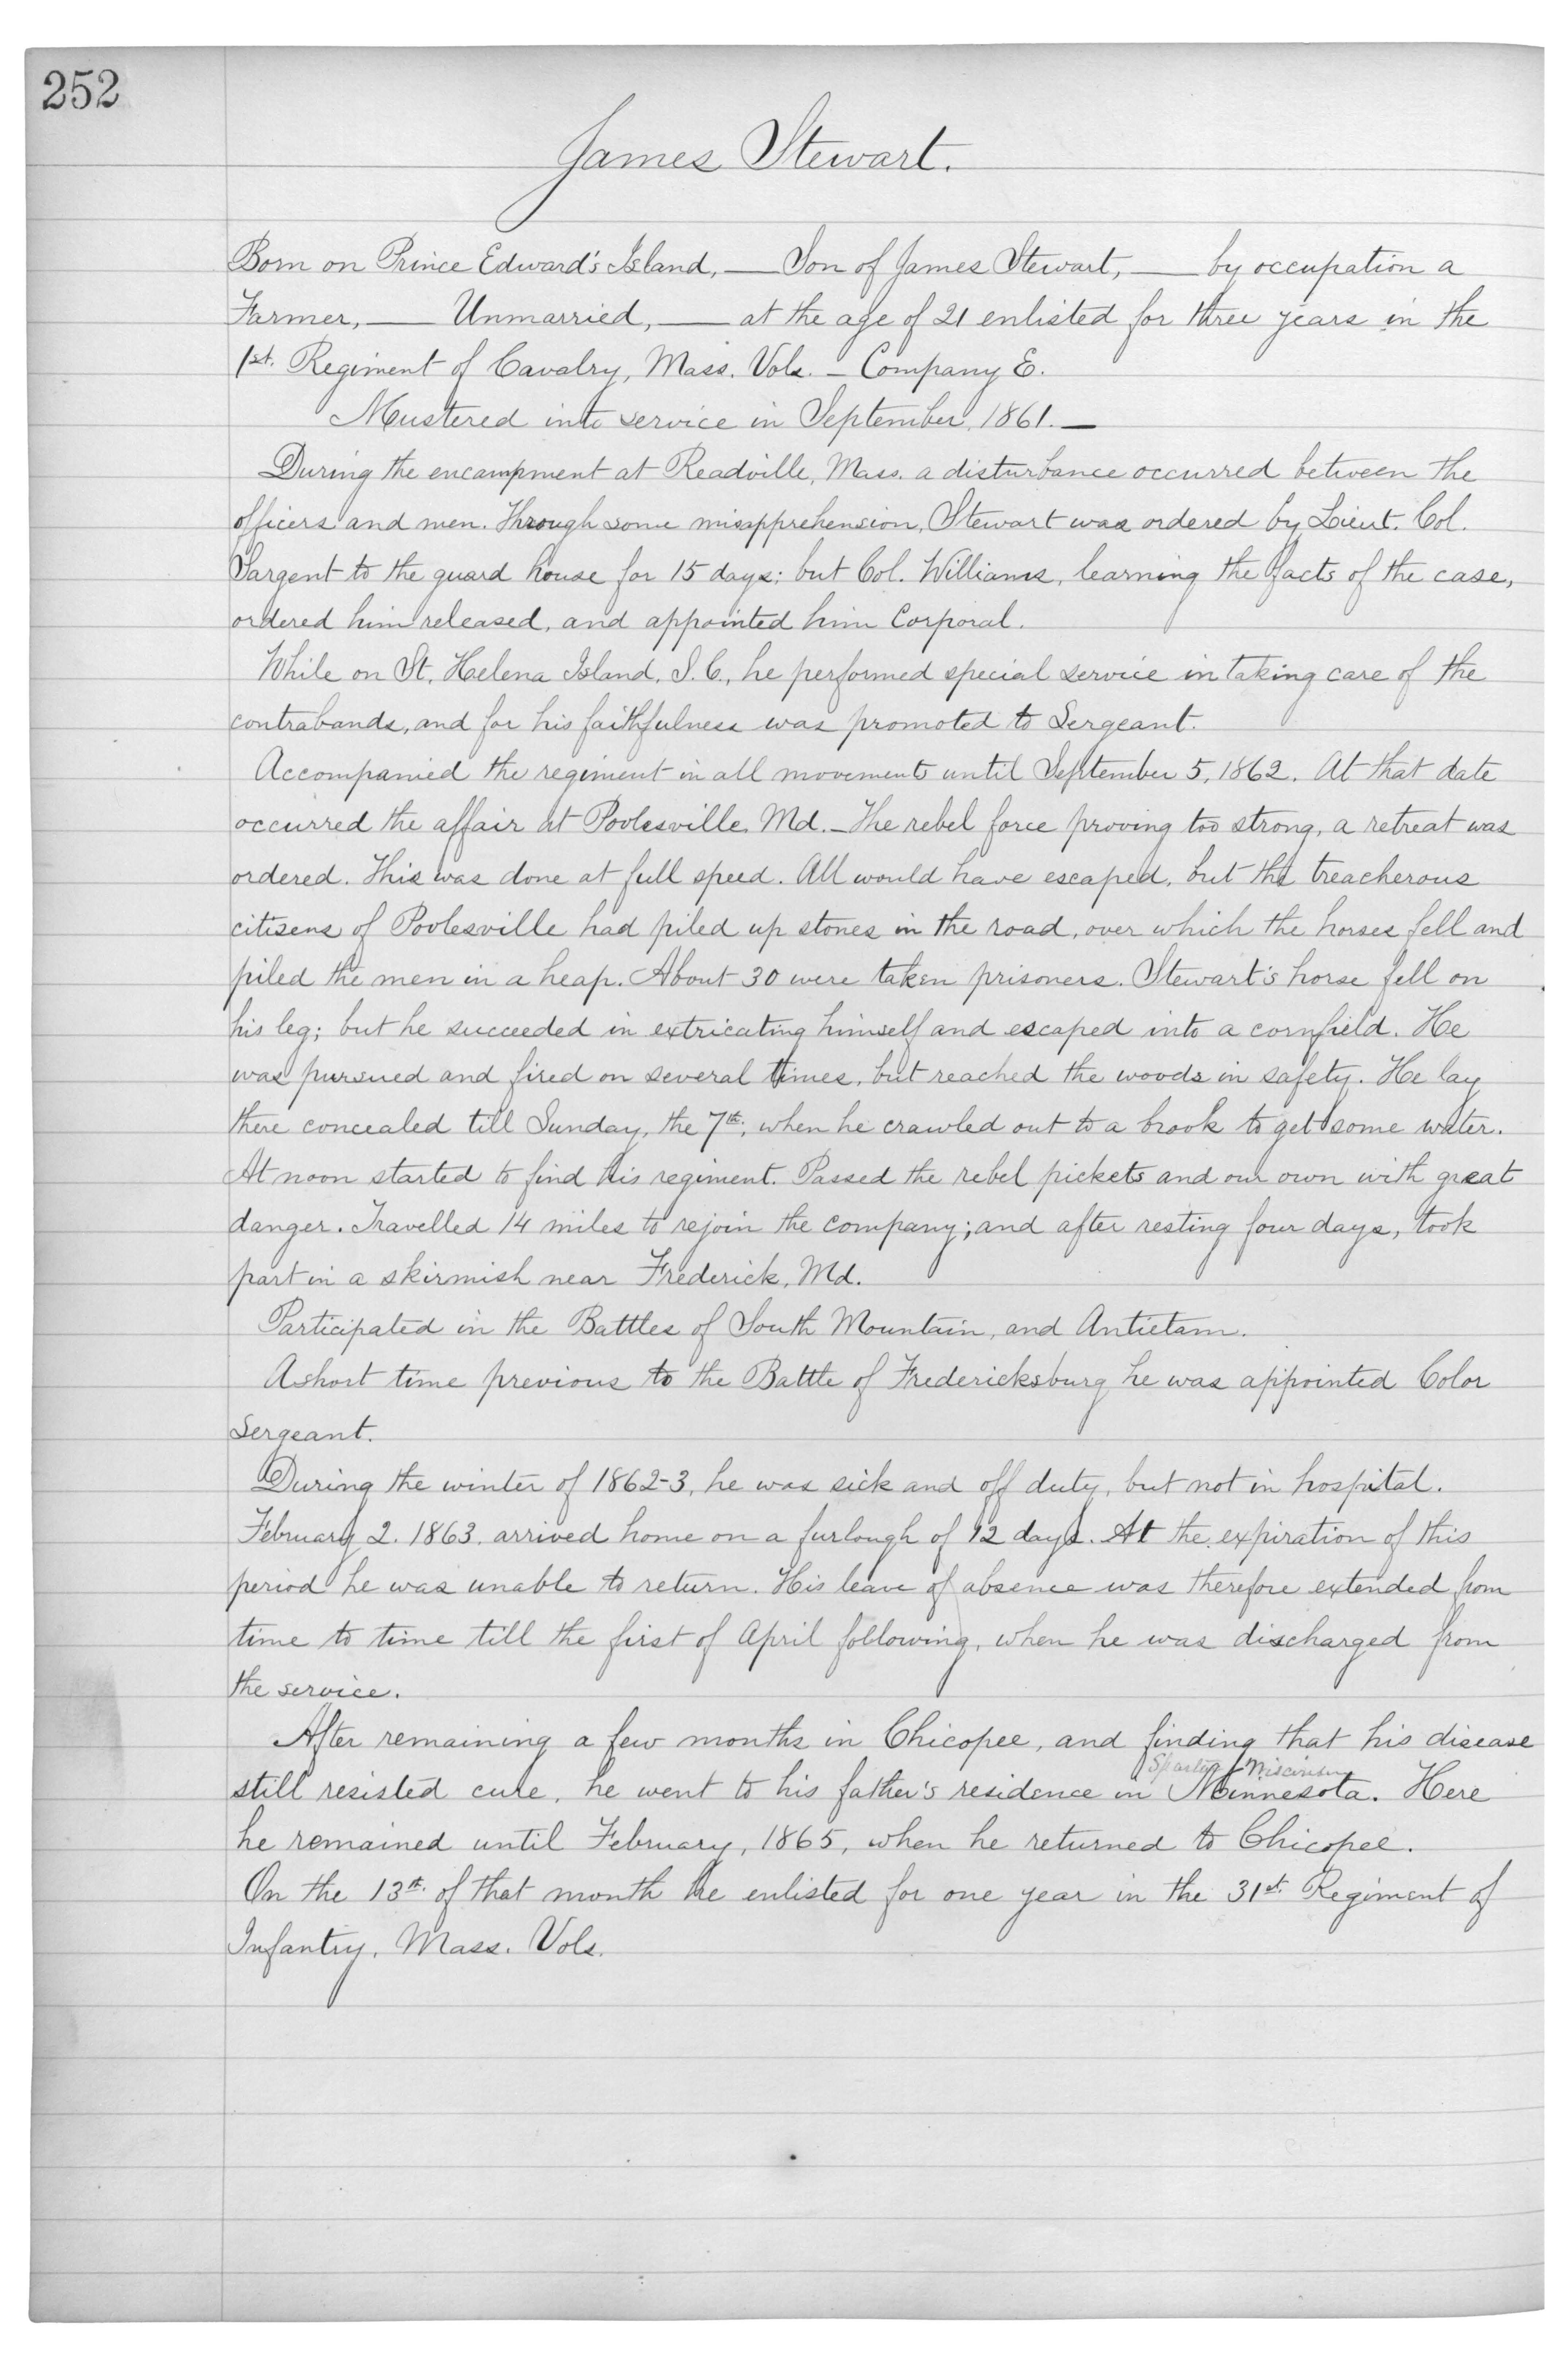 252
James Stewart.
Born on Prince Edward's Island, — Son of James Stewart, — by occupation a
Farmer, — Unmarried, — at the age of 21 enlisted for three years in the
1st. Regiment of Cavalry, Mass. Vols. – Company E.
Mustered into service in September, 1861. —
During the encampment at Readville, Mass. a disturbance occurred between the
officers and men. Through some misapprehension, Stewart was ordered by Lieut. Col.
Sargent to the guard house for 15 days; but Col. Williams, learning the facts of the case,
ordered him released, and appointed him Corporal.
While on St. Helena Island, S.C., he performed special service in taking care of the
contrabands, and for his faithfulness was promoted to Sergeant.
Accompanied the regiment in all movements until September 5, 1862. At that date
occurred the affair at Poolesville, Md. – The rebel force proving too strong, a retreat was
ordered. This was done at full speed. All would have escaped, but the treacherous
citizens of Poolesville had piled up stones in the road, over which the horses fell and
piled the men in a heap. About 30 were taken prisoners. Stewart's horse fell on
his leg; but he succeeded in extricating himself and escaped into a cornfield. He
was pursued and fired on several times, but reached the woods in safety. He lay
there concealed till Sunday, the 7th, when he crawled out to a brook to get some water.
At noon started to find his regiment. Passed the rebel pickets and our own with great
danger. Travelled 14 miles to rejoin the company; and after resting four days, took
part in a skirmish near Frederick, Md.
Participated in the Battles of South Mountain, and Antietam.
A short time previous to the Battle of Fredericksburg he was appointed Color
Sergeant.
During the winter of 1862-3, he was sick and off duty, but not in hospital.
February 2. 1863. arrived home on a furlough of 12 days. At the expiration of this
period he was unable to return. His leave of absence was therefore extended from
time to time till the first of April following, when he was discharged from
the service.
After remaining a few months in Chicopee, and finding that his disease
Sparta Wisconsin
still resisted cure, he went to his father's residence in Minnesota. Here
he remained until February, 1865, when he returned to Chicopee.
On the 13th. of that month he enlisted for one year in the 31st. Regiment of
Infantry, Mass. Vols.